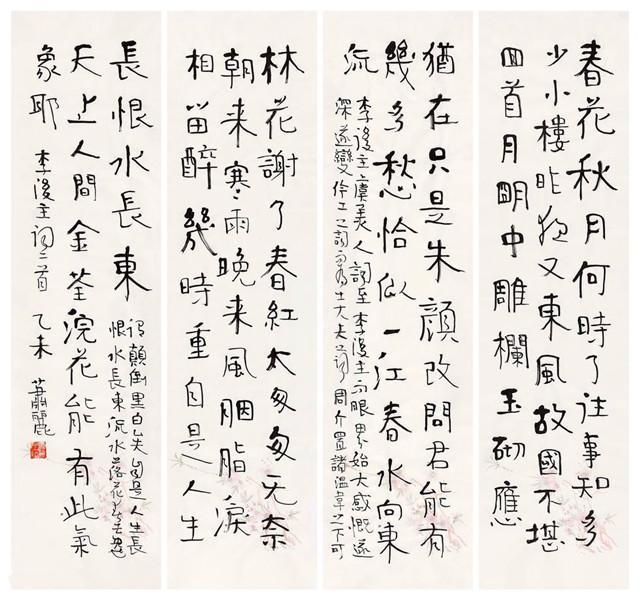 春花秋月何時了往事知多
少小樓昨夜又東風故國不堪
回首月明中雕欄玉砌應
猶在只是朱顏改問君能有
幾多愁恰似一江春水向東
流
李後主虞美人詞至李後主而眼界始大感慨遂
深遂變伶工之詞而為士大夫之詞周介置諸溫韋之下可
林花謝了春紅太匆匆无奈
朝来寒雨晚来風胭脂淚
相留醉幾時重自是人生
長恨水長東
謂顛倒黑白矣自是人生長
恨水長東流水落花春去也
天上人間金荃浣花能有此氣
象耶 李後主詞二首 乙未 蕭麗